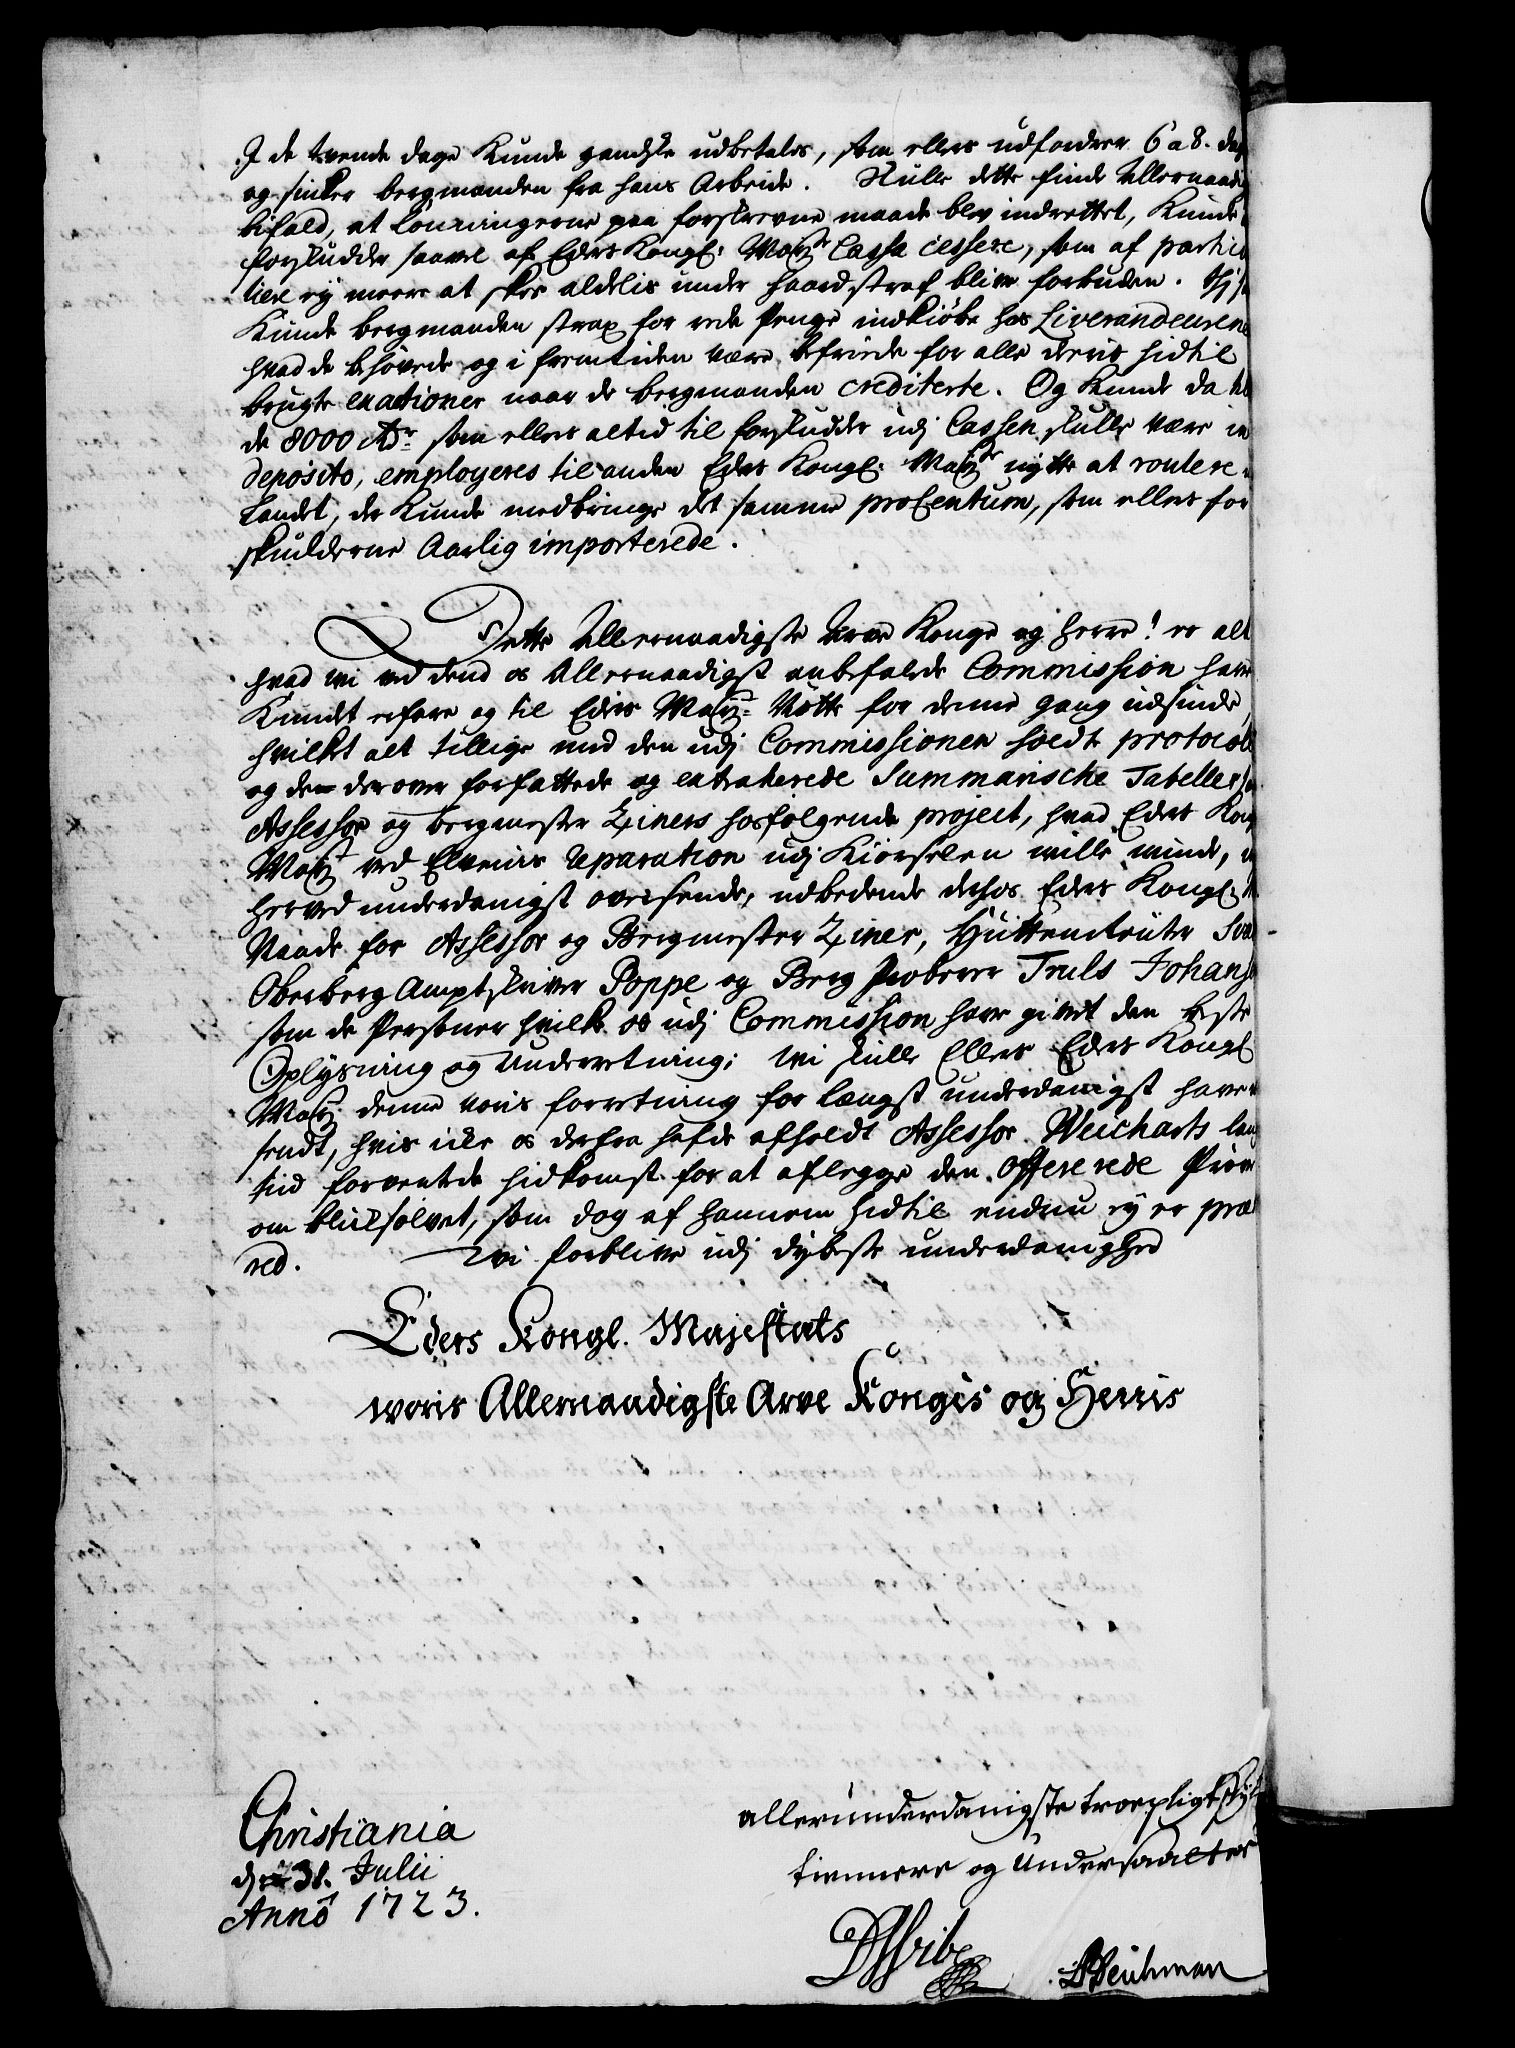 I de tvende dage Kunde gandske udbetales, som ellers udfordrer 6 a 8. dag
og sinker bergmanden fra hans Arbeide. Skulle dette finde Allernaadig
bifald, at Lönningerne paa forskrevne maade blev indrettet, Kunde
forskudder saavel af Eders Kongl: May:ts Cassa cessere, som af particu
liere ey meere at skee aldelis under haard straf blive forbuden.
Kunde bergmanden strax for rede Penge indkiöbe hos Liverandeurene
hvad de behövede og i fremtiden være befriede for alle deris hidtil
brugte exactioner naar de bergmanden crediterte. Og Kunde da
de 8000 Rdr som ellers altid til forskudde udj Cassen skulle være in
deposito, employeres til anden Eders Kongl: May:ts nytte at roulere
Landet, der Kunde medbringe det samme procentum, som ellers for
skudderne Aarlig importerede.
Dette Allernaadigste Arve Konge og Herre! er alt
hvad wi ved dend os Allernaadigst anbefalede Commission have
Kundet erfare og til Eders May:ts Nötte for denne gang udfinde,
hvilket alt tillige med den udj Commissionen holdte protocoll
og den derover forfattede og extraherede Summarische Tabeller
Assessor og bergmester Ziners hosfölgende project, hvad Eders Kong
May:t ved Elvenis reparation udj Kiörselen wille winde,
herved underdanigst oversende, udbedende derhos Eders Kongl:
Naade for Assessor og Bergmester Ziner, Hüttendeüter
Oberberg Amptskriver Poppe og Berg Probeerer Truls Johans
som de Personer hvilke os udj Commission have givet den beste
Oplysning og Underretning; wi skulle Ellers Eders Kongl
May:t denne voris forretning for længst underdanigst have
sendt, hvis icke os derfra hafde afholdt Assessor Weicharts lang
tiid forventede hidkomst for at aflegge den offererede Pröve
om bliksölvet, som dog af hannem hidtil endnu ey er præ
red. Wi forblive udj dybeste underdanighed
Eders Kongl. Majestats
woris Allernaadigste Arve Konges og Herris
Christiania
d 31. Julii
Anno 1723.
allerunderdanigste troepligtskyl
tiennere og Undersaatter
DVibe
BWeichman